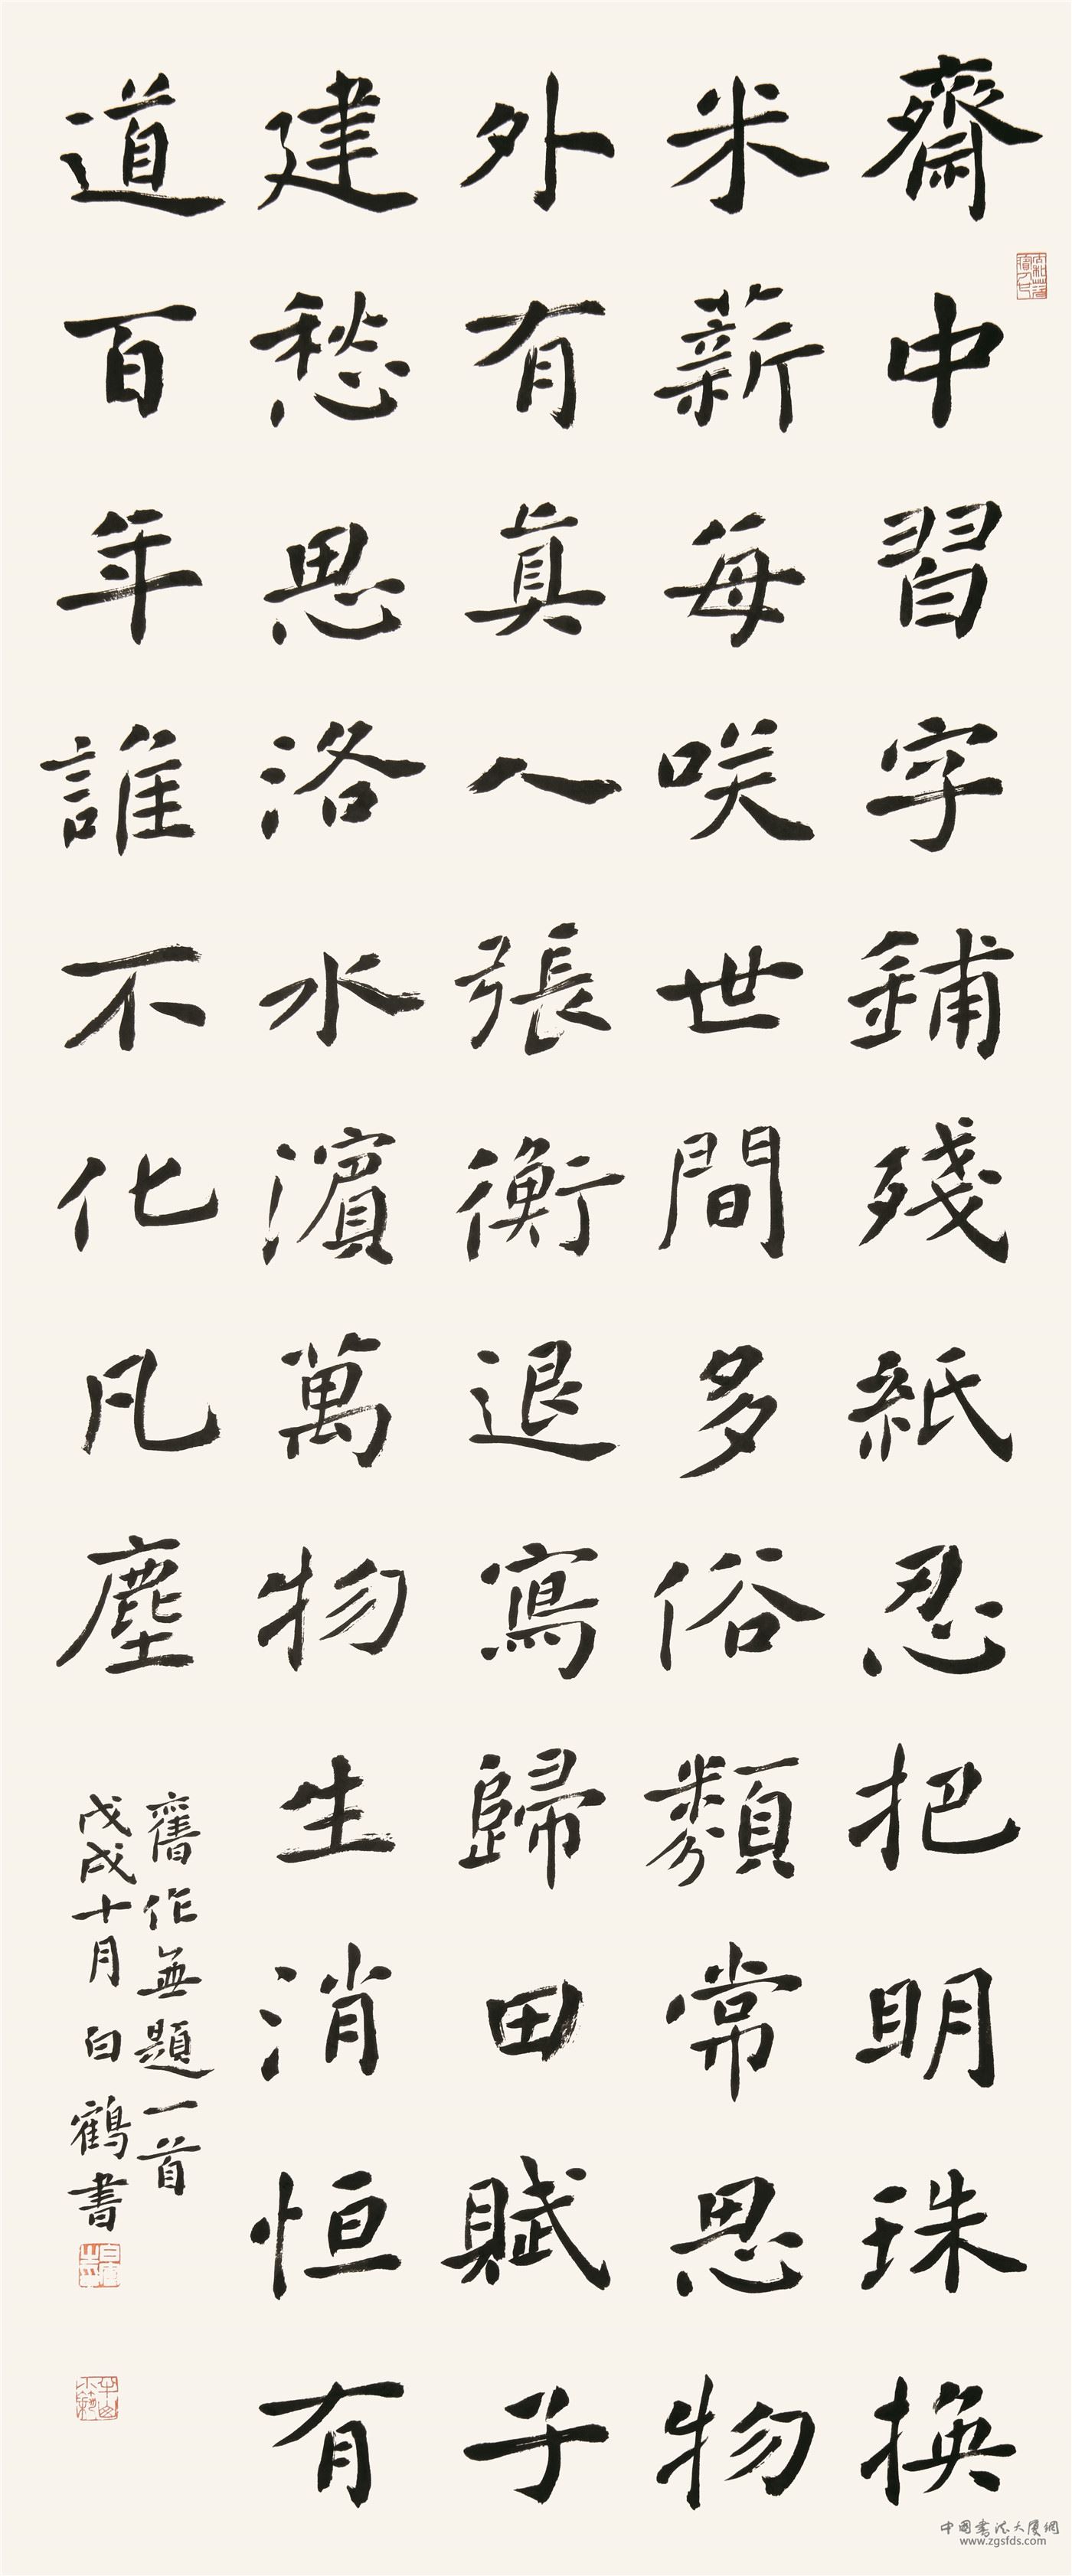 齋中習字鋪殘紙忍把明珠換
米薪每咲世間多俗類常思物
外有真人張衡退寫歸田賦子
建愁思洛水濱萬物生消恒有
道百年誰不化凡塵
舊作無題一首
戊戌十月白鶴書
中国书法大厦網
www.zgsfds.com